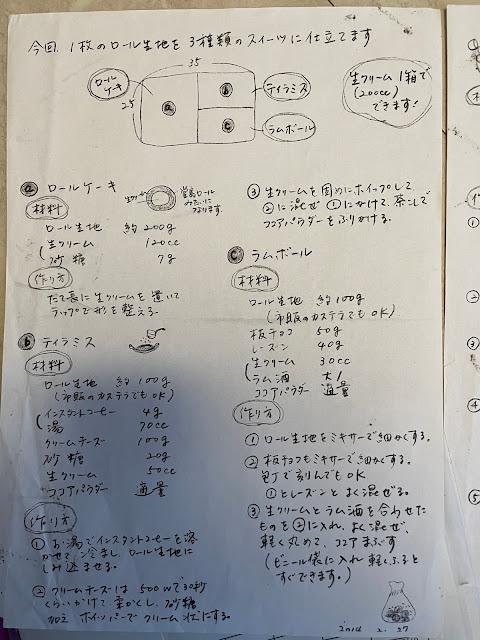 今回、1枚のロール生地を3種類のスイーツに仕立てます
35
25
ロールケーキ
ⓐ
ⓑ
ⓒ
ティラミス
ラムボール
生クリーム1箱で
(200cc)
できます!
ⓐ ロールケーキ
材料
生クリーム
堂島ロール
みたいに
なります。
ロール生地 約200g
生クリーム 120cc
砂糖 7g
作り方
たて長に生クリームを置いて
ラップで形を整える。
ⓑ ティラミス
材料
ロール生地 約100g
(市販のカステラでもOK)
インスタントコーヒー 4g
湯 70cc
クリームチーズ 100g
砂糖 20g
生クリーム 50cc
ココアパウダー 適量
作り方
① お湯でインスタントコーヒーを溶
かせて冷まし、ロール生地に
しみ込ませる。
② クリームチーズは500Wで30秒
くらいかけて柔かくし、砂糖
加え ホイッパーでクリーム状にする。
③ 生クリームを固めにホイップして
②に混ぜ ①にかけて、茶こしで
ココアパウダーをふりかける。
ⓒ ラムボール
材料
ロール生地 約100g
(市販のカステラでもOK)
板チョコ 50g
レーズン 40g
生クリーム 30cc
ラム酒 大1
ココアパウダー 適量
作り方
① ロール生地をミキサーで細かくする。
② 板チョコもミキサーで細かくする。
包丁で刻んでもOK
①とレーズンとよく混ぜる。
③ 生クリームとラム酒を合わせた
ものを②に入れ、よく混ぜ、
軽く丸めて、ココアまぶす
(ビニール袋に入れ軽くふると
すぐできます。)
2014 2. 27